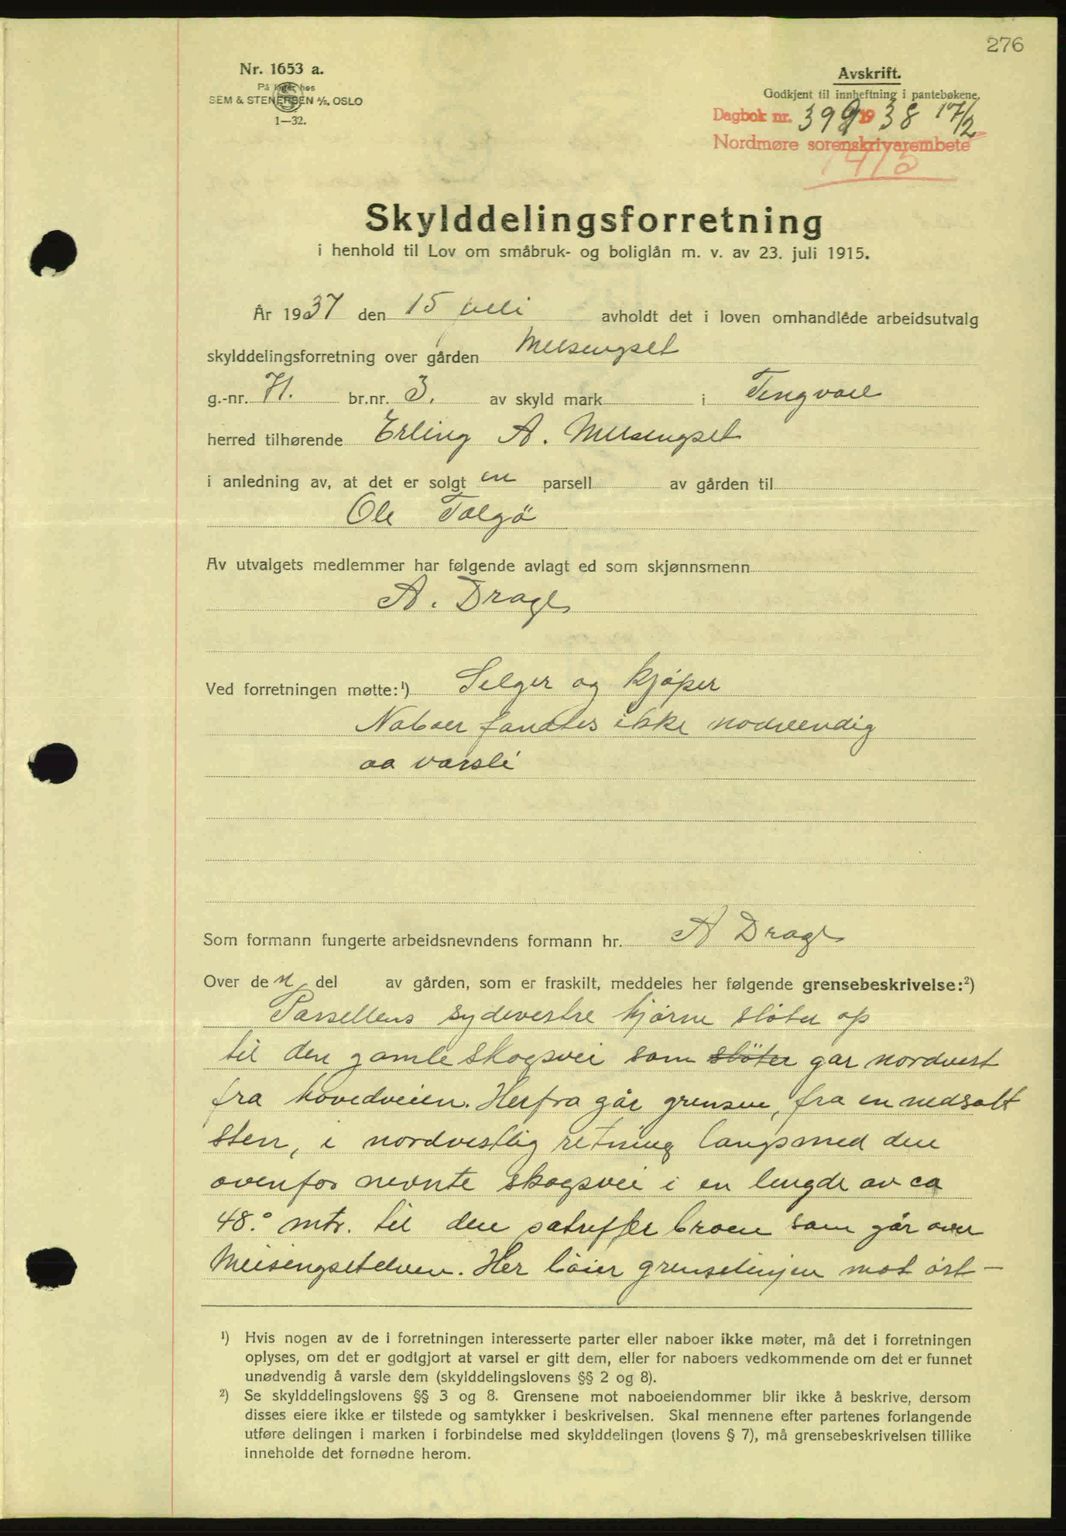 276
Nr. 1653 a.
På lager hos
SEM & STENERSEN A/S, OSLO
1—32.
Avskrift.
Godkjent til innheftning i pantebøkene.
Dagbok nr. 399 1938 17/2
Nordmøre sorenskriverembete
1415
Skylddelingsforretning
i henhold til Lov om småbruk- og boliglån m. v. av 23. juli 1915.
År 1937 den 15 juli avholdt det i loven omhandlede arbeidsutvalg
skylddelingsforretning over gården Meisengset
g.-nr. 71. br.nr. 3. av skyld mark i Tingvoll
herred tilhørende Erling A. Meisengset
i anledning av, at det er solgt en parsell av gården til
Ole Talgö
Av utvalgets medlemmer har følgende avlagt ed som skjønnsmenn
A. Drags
Ved forretningen møtte:¹) Selger og kjøper
Naboer fandtes ikke nødvendig
aa varsle
Som formann fungerte arbeidsnevndens formann hr. A Drags
Over den del av gården, som er fraskilt, meddeles her følgende grensebeskrivelse:²)
Parsellens sydvestre hjørne støter op
til den gamle skogsvei som støter gar nordvest
fra hovedveien. Herfra går grensen, fra en nedsatt
sten, i nordvestlig retning langsmed den
ovenfor nevnte skogsvei i en lengde av ca
48.⁰ mtr. til den patreffer broen som går over
Meisengsetelven. Her bøier grenselinjen mot øst-
¹) Hvis nogen av de i forretningen interesserte parter eller naboer ikke møter, må det i forretningen
oplyses, om det er godtgjort at varsel er gitt dem, eller for naboers vedkommende om det er funnet
unødvendig å varsle dem (skylddelingslovens §§ 2 og 8).
²) Se skylddelingslovens §§ 3 og 8. Grensene mot naboeiendommer blir ikke å beskrive, dersom
disses eiere ikke er tilstede og samtykker i beskrivelsen. Skal mennene efter partenes forlangende
utføre delingen i marken i forbindelse med skylddelingen (lovens § 7), må grensebeskrivelsen tillike
inneholde det fornødne herom.